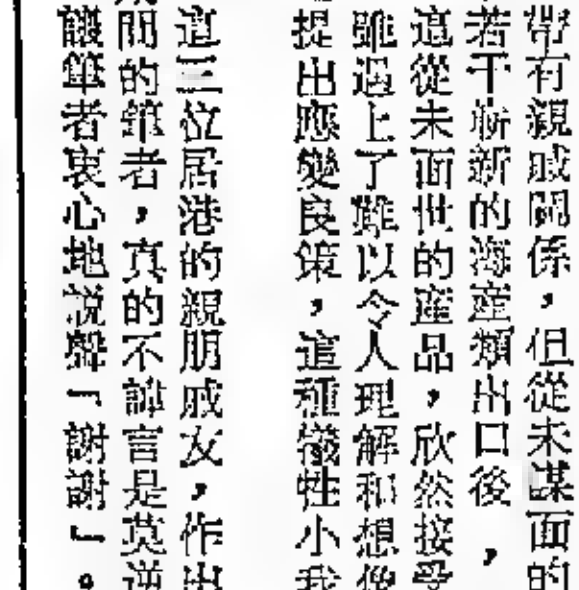 帶有親戚關係，但從未謀面的
若干嶄新的海產類出口後，
這從未面世的產品，欣然接受
雖遇上了難以令人理解和想像
提出應變良策，這種犧牲小我
這三位居港的親朋戚友，作出
間的筆者，真的不諱言是莫逆
讓筆者衷心地説聲「謝謝」。